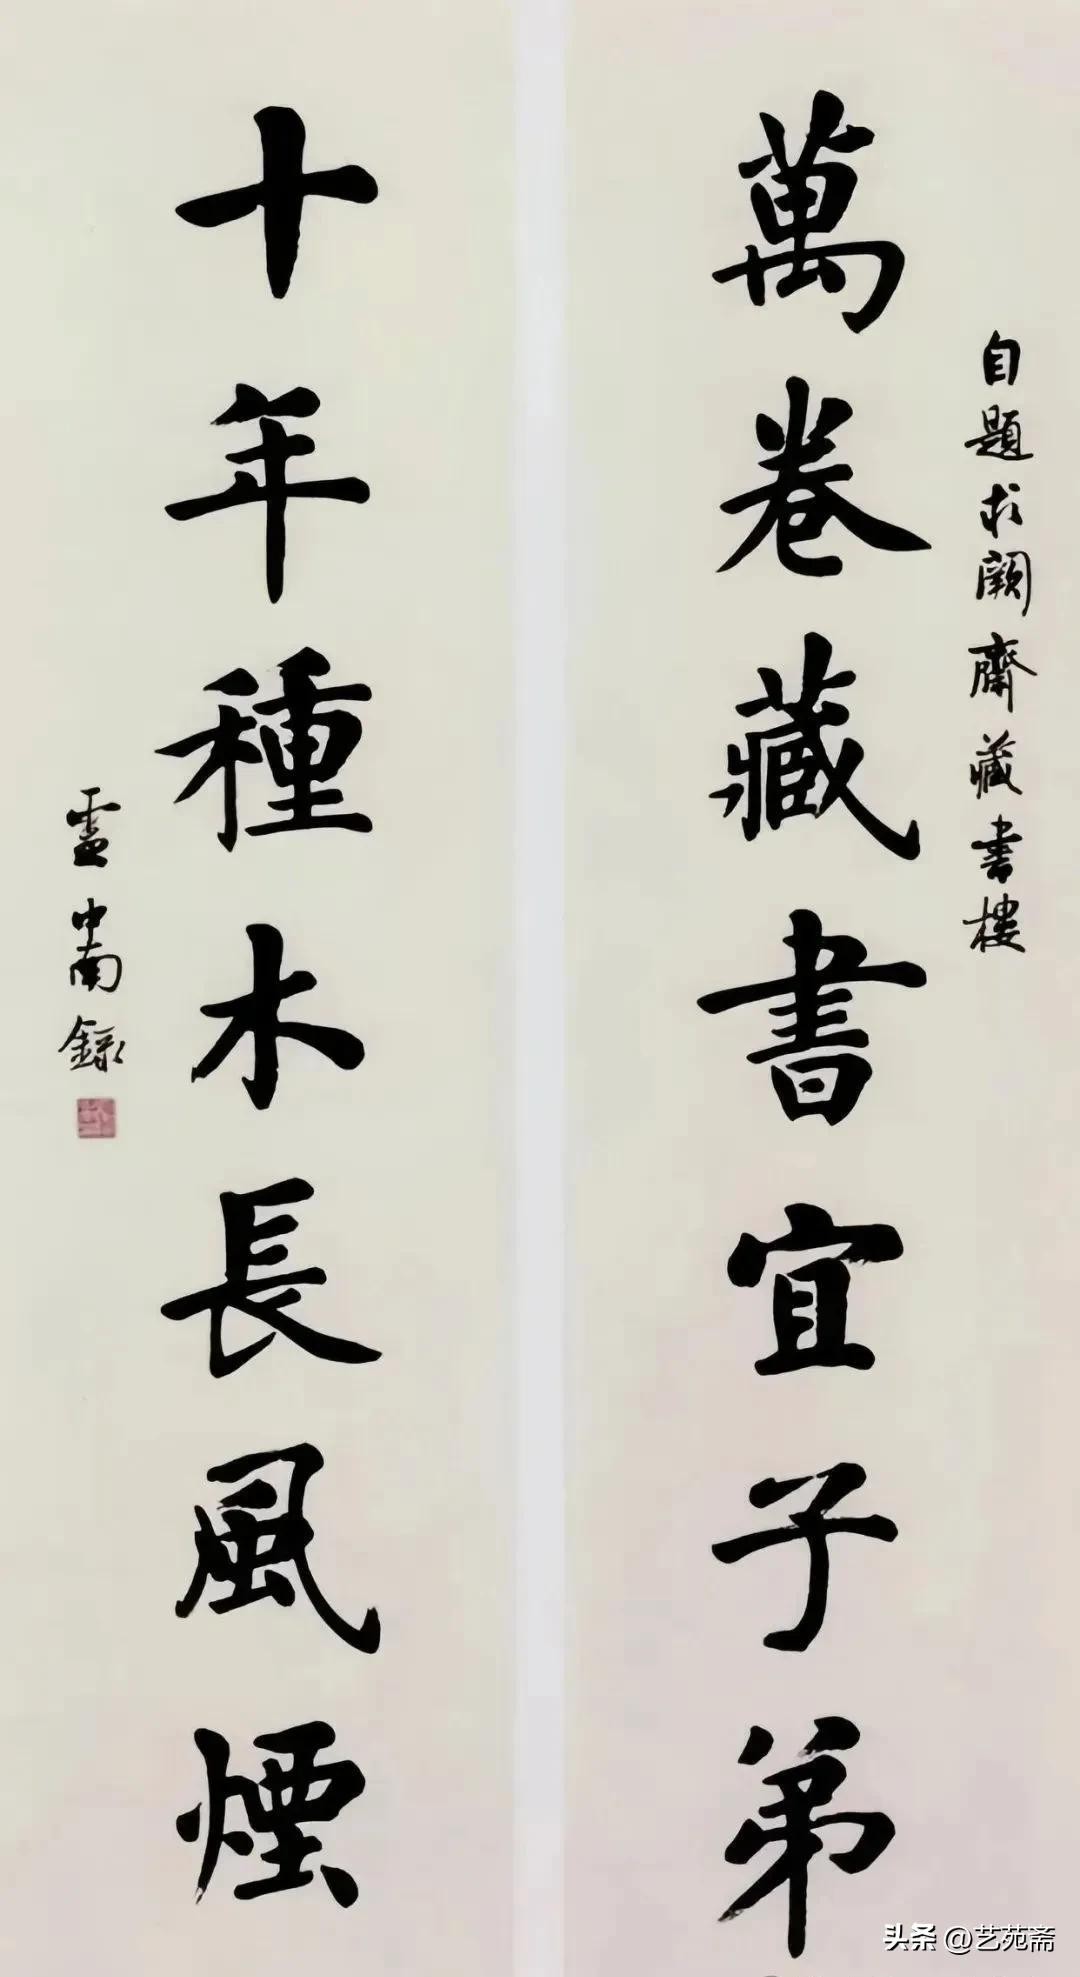 自題求闕齋藏書樓
萬卷藏書宜子弟
十年種木長風煙
盧中南錄
头条 @艺苑斋